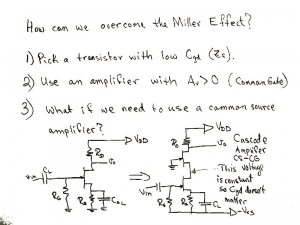 How can we overcome the Miller Effect?
1) Pick a transistor with low Cgd
2) Use an amplifier with Av>0 (Common Gate)
3) What if we need to use a common source
amplifier?
VDD
RD
Vo
CL
Vin
RG
RS
⇒
VDD
RD
Vo
Cascode
Amplifier
CS-CG
This voltage
is constant
so Cgd doesn't
matter
Vin
RG
CL
-VSS